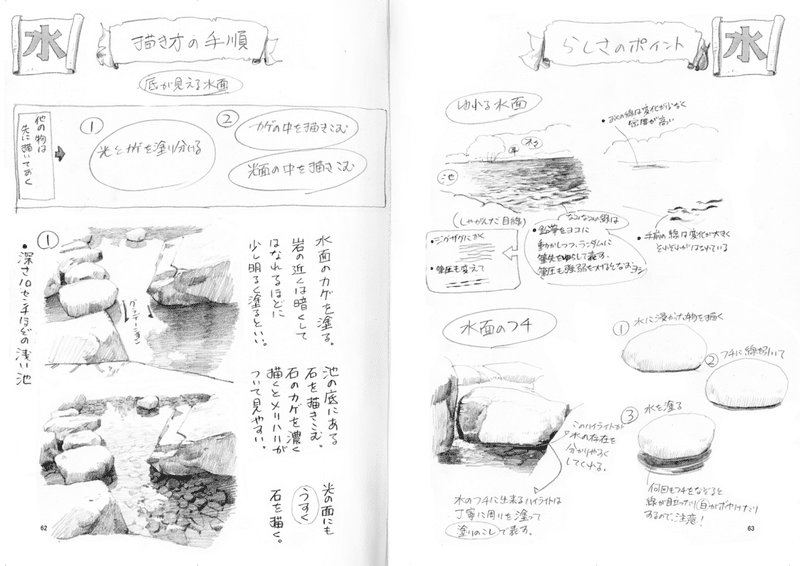 水
描き方の手順
底が見える水面
他の物は
先に描いておく
①
光とカゲを塗り分ける
②
カゲの中を描きこむ
光面の中を描きこむ
①
●深さ10センチほどの浅い池
グラデーション
水面のカゲを塗る。
岩の近くは暗くして
はなれるほどに
少し明るく塗るといい。
池の底にある
石を描きこむ。
石のカゲを濃く
描くとメリハリが
ついて見やすい。
光の面にも
うすく
石を描く。
62
らしさのポイント
水
ゆれる水面
●おくの線は変化が少なく
密度が高い
池
(しゃがんだ目線)
●ジグザグにかく
●筆圧も変えて
●鉛筆をヨコに
動かしつつ、ランダムに
筆先をゆらして表す。
●手前の線は変化が大きく
それぞれがはなれている
水面のフチ
① 水に浸かった物を描く
② フチに線を引いて
③ 水を塗る
このハイライトが
水の存在を
分かりやすく
してくれる。
水のフチに出来るハイライトは
丁寧に周りを塗って
塗りのこしで表す。
何回もフチをなぞると
線が目立ったり(白)がボヤけたり
するので、注意!
63